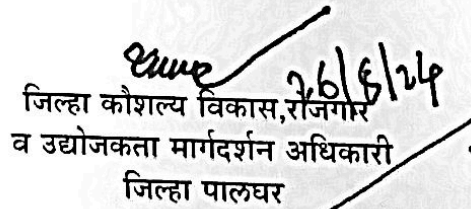 26/6/24
जिल्हा कौशल्य विकास,रोजगार
व उद्योजकता मार्गदर्शन अधिकारी
जिल्हा पालघर